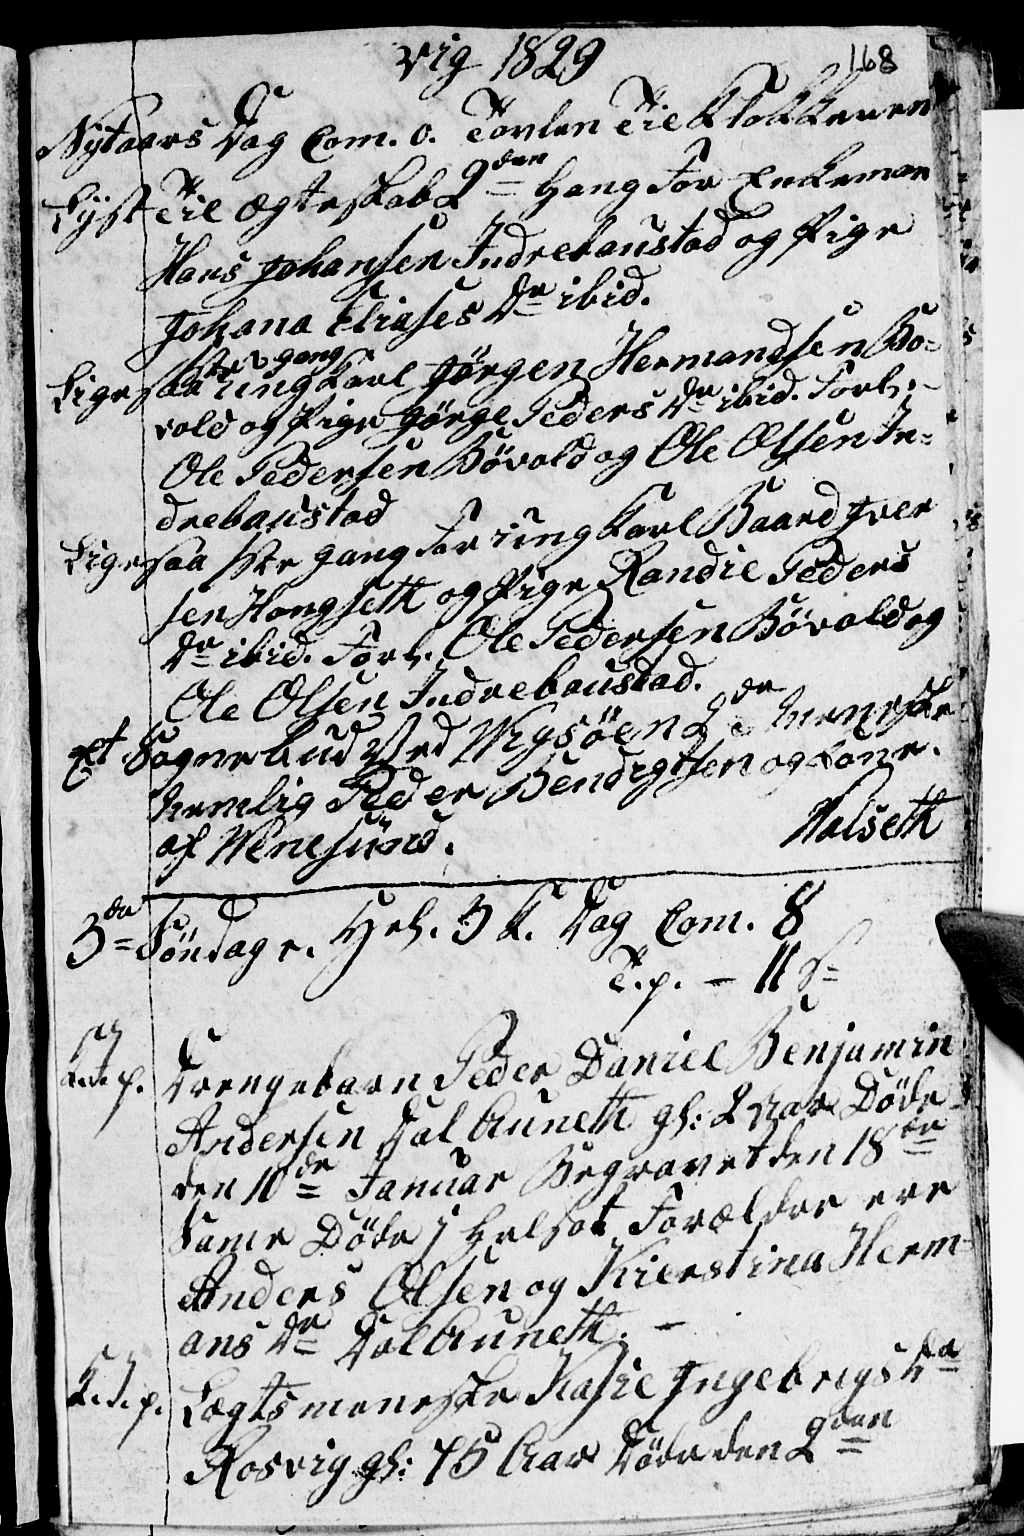 Vig 1829
168
Nytaars Dag Com. 0. Tavlen Til Klokkeren
Lÿst Til Ægteskab 2den Gang For Enkeman
Hans Johansen Indrebaustad og Pige
Johana Eliases Dr ibid.
Ligesaa 1ste gang ungkarl Jørgen Hermandsen Bø=
vold og Pige Jørge Peders Dr ibid. Forl:
Ole Pedersen Bøvold og Ole Olsen In=
drebaustad
Ligesaa 1ste gang For ungkarl Baard Iver
sen Hongseth og Pige Randie Peders
Dr ibid. Forl. Ole Pedersen Bøvold og
Ole Olsen Indrebaustad.
Et Sognebud Ved Wigsøen 2de Meneske
nemlig Peder Bendigtsen og kone.
af Wenesund.
Valseth
3de Søndag e. Hel. 3 K. Dag Com. 8
T. p. – 11 s
J. p. Drengebarn Peder Daniel Benjamin
Andersen Dalbuneth gl: 2 Aar Døde
den 10de Januar Begravet den 18de
Same Døde i Helsot Forældre ere
Anders Olsen og Kierstina Herm=
ans Dr Dalbuneth. –
J. p. Lægtsmeneske Kasie Ingebrigs Dr
Rosvig gl: 75 Aar Døde den 2den